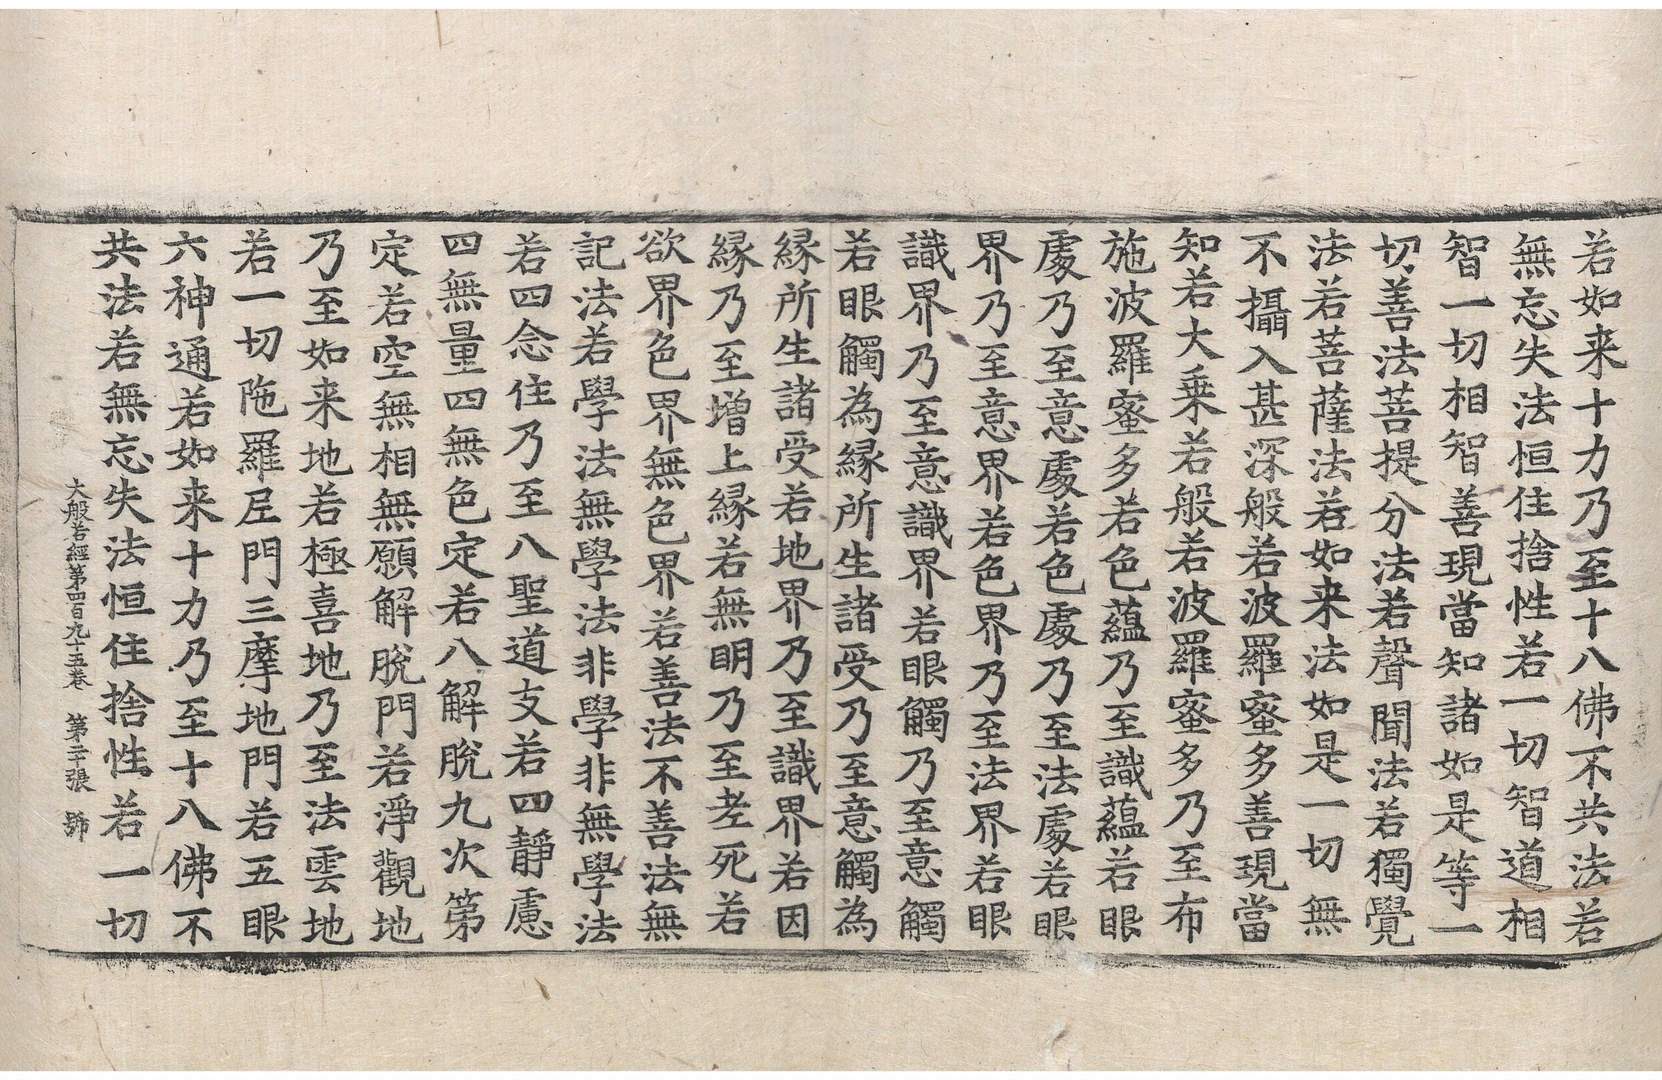 若如来十力乃至十八佛不共法若
無忘失法恒住捨性若一切智道相
智一切相智善現當知諸如是等一
切善法菩提分法若聲聞法若獨覺
法若菩薩法若如来法如是一切無
不攝入甚深般若波羅蜜多善現當
知若大乗若般若波羅蜜多乃至布
施波羅蜜多若色蘊乃至識蘊若眼
處乃至意處若色處乃至法處若眼
界乃至意界若色界乃至法界若眼
識界乃至意識界若眼觸乃至意觸
若眼觸為縁所生諸受乃至意觸為
縁所生諸受若地界乃至識界若因
縁乃至增上縁若無明乃至老死若
欲界色界無色界若善法不善法無
記法若學法無學法非學非無學法
若四念住乃至八聖道支若四靜慮
四無量四無色定若八解脫九次第
定若空無相無願解脫門若淨觀地
乃至如来地若極喜地乃至法雲地
若一切陁羅尼門三摩地門若五眼
六神通若如来十力乃至十八佛不
共法若無忘失法恒住捨性若一切
大般若經第四百九十五卷 第二十張 號